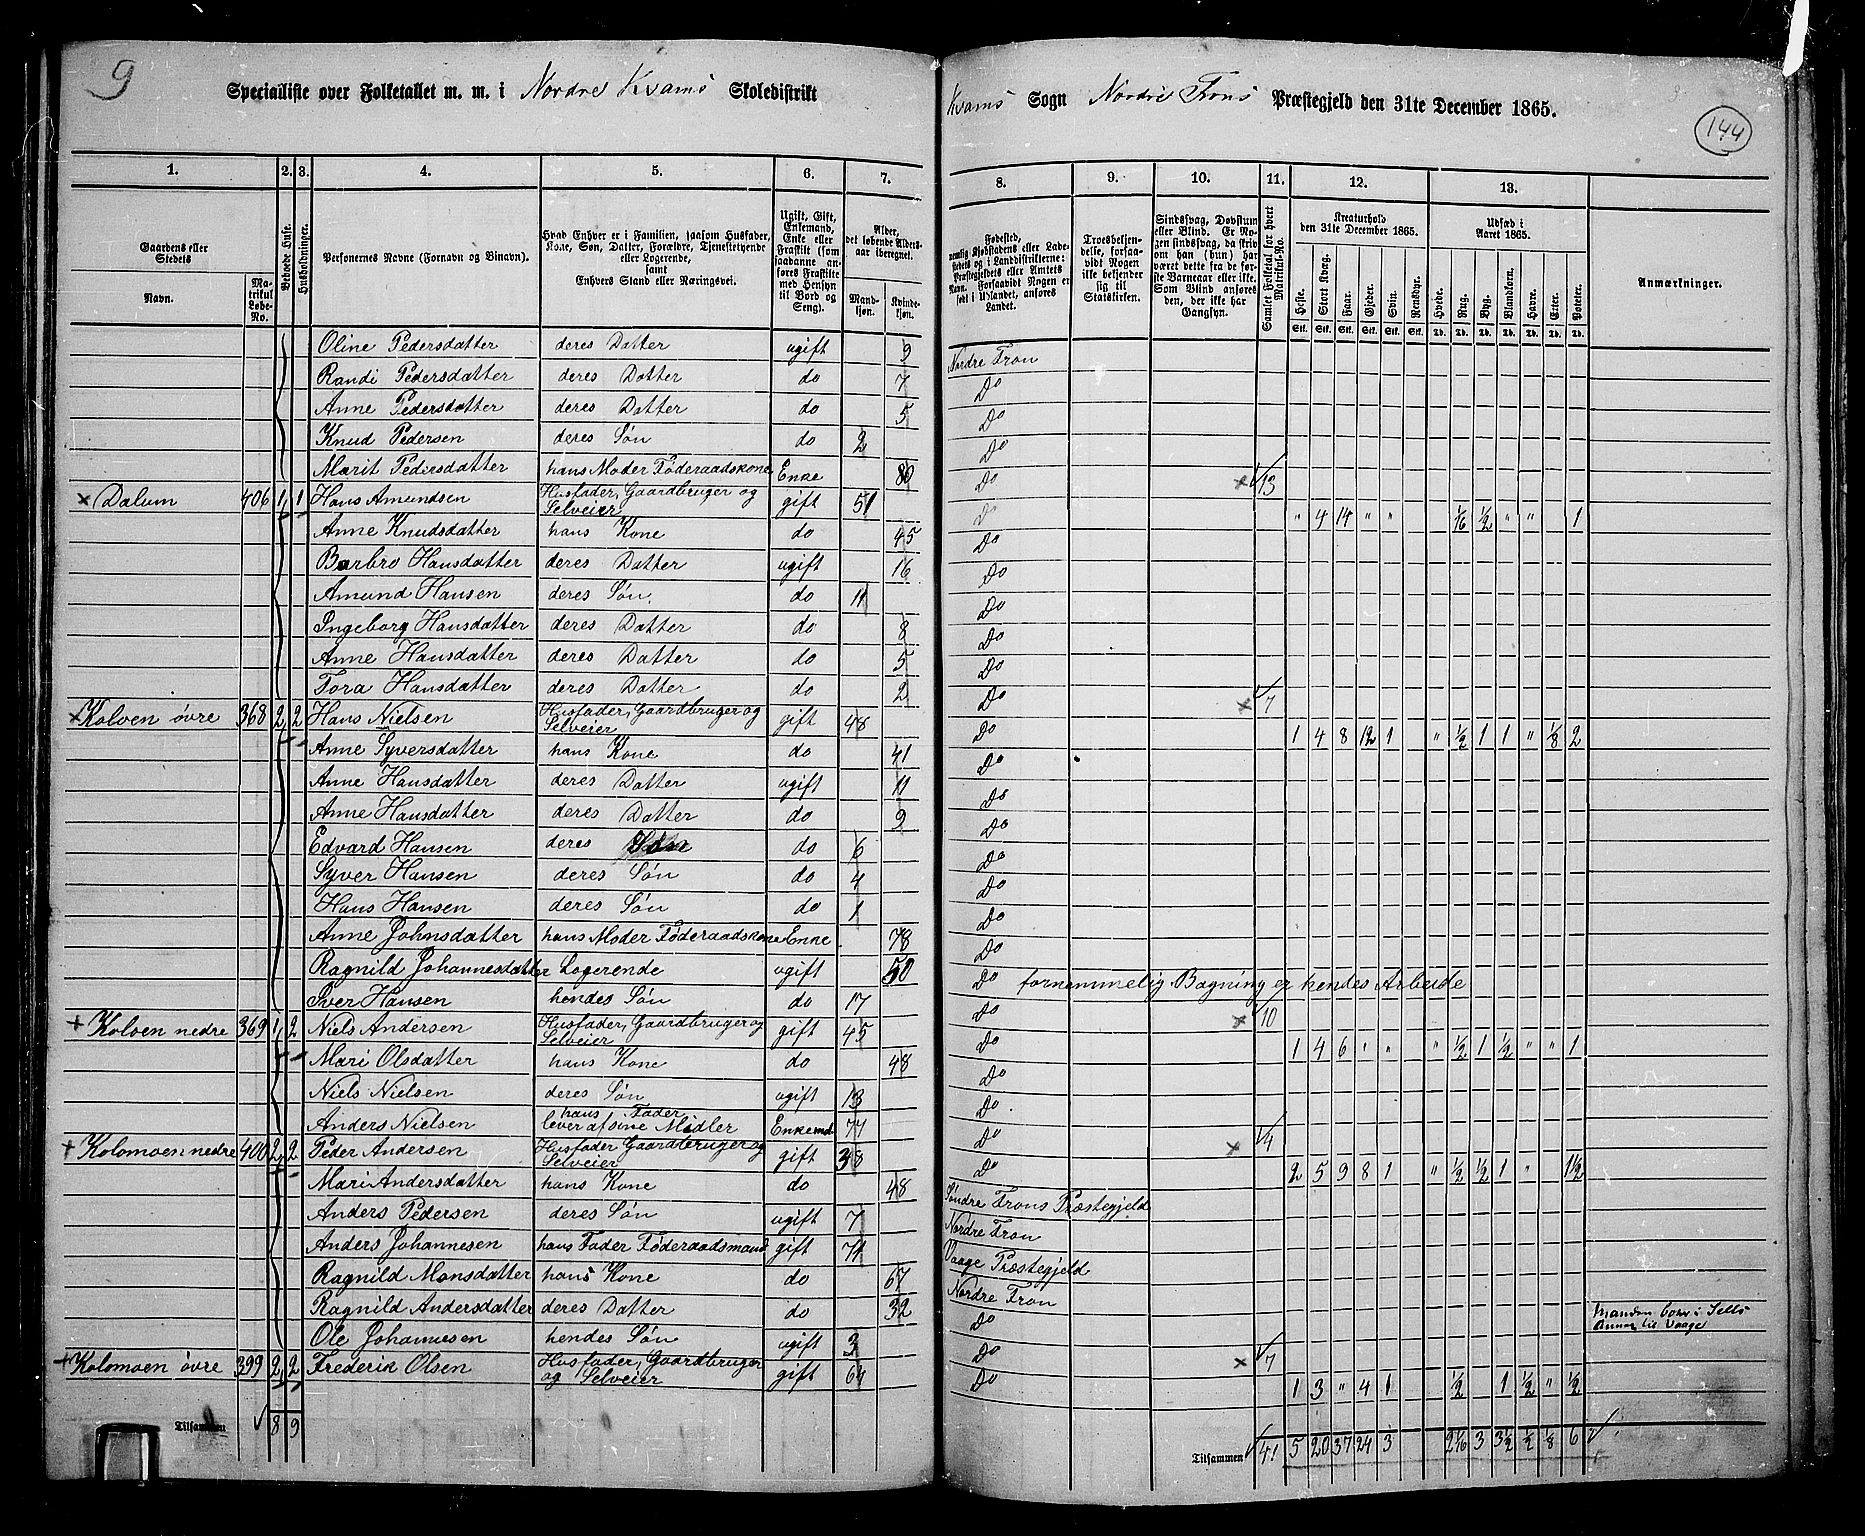 9
Specialliste over Folketallet m. m. i Nordre Kvams Skoledistrikt
Kvams Sogn Nordre Frons Præstegjeld den 31te December 1865.
144
1. 2. 3. 4. 5. 6. 7. 8. 9. 10. 11. 12. 13.
Gaardens eller Stedets
Navn.
Matrikul Løbe-No.
Beboede Huse.
Husholdninger.
Personernes Navne (Fornavn og Binavn).
Hvad Enhver er i Familien, saasom Husfader, Kone, Søn, Datter, Forældre, Tjenestetyende eller Logerende, samt Enhvers Stand eller Næringsvei.
Ugift, Gift, Enkemand, Enke eller Fraskilt (som saadanne anføres Fraskilte med Hensyn til Bord og Seng).
Alder, det løbende Aldersaar iberegnet.
Mandkjøn. Kvindekjøn.
Fødested, nemlig Kjøbstadens eller Ladestedets og i Landdistrikterne: Præstegjeldets eller Amtets Navn. Forsaavidt Nogen er født i Udlandet, anføres Landet.
Troesbekjendelse, forsaavidt Nogen ikke bekjender sig til Statskirken.
Sindssvag, Døvstum eller Blind. Er Nogen sindssvag, da skriv om han (hun) har været dette fra de første Barneaar eller ikke. Som Blind anføres den, der ikke har Gangsyn.
Samlet Folketal for hvert Matrikul-No.
Kreaturhold den 31te December 1865.
Heste. Stort Kvæg. Faar. Gjeder. Svin. Rensdyr.
Udsæd i Aaret 1865.
Hvede. Rug. Byg. Blandkorn. Havre. Erter. Poteter.
Anmærkninger.
Stk. Stk. Stk. Stk. Stk. Stk. Td. Td. Td. Td. Td. Td. Td.
Oline Pedersdatter deres Datter ugift 9 Nordre Fron
Randi Pedersdatter deres Datter do 7 Do
Anne Pedersdatter deres Datter do 5 Do
Knud Pedersen deres Søn do 2 Do
Marit Pedersdatter hans Moder Føderaadskone Enke 80 Do × 13
× Dalum 406 1 1 Hans Amundsen Husfader, Gaardbruger og Selveier gift 51 Do " 4 14 " " 1/16 1/2 " " 1
Anne Knudsdatter hans Kone do 45 Do
Barbro Hansdatter deres Datter ugift 16 Do
Amund Hansen deres Søn. do 11 Do
Ingeborg Hansdatter deres Datter do 8 Do
Anne Hansdatter deres Datter do 5 Do
Tora Hansdatter deres Datter do 2 Do × 7
× Kolven øvre 368 2 2 Hans Nielsen Husfader, Gaardbruger og Selveier gift 48 Do 1 4 8 12 1 " 1/2 1 1 " 1/8 2
Anne Syversdatter hans Kone do 41 Do
Anne Hansdatter deres Datter ugift 11 Do
Anne Hansdatter deres Datter do 9 Do
Edvard Hansen deres Søn do 6 Do
Syver Hansen deres Søn do 4 Do
Hans Hansen deres Søn do 1 Do
Anne Johnsdatter hans Moder Føderaadskone Enke 78 Do
Ragnild Johannesdatter Logerende ugift 50 Do fornemmelig Bagning er hendes Arbeide
Iver Hansen hendes Søn do 17 Do × 10
+ Kolven nedre 369 1 2 Niels Andersen Husfader, Gaardbruger og Selveier gift 45 Do 1 4 6 " " " 1/2 1 1/2 " " 1
Mari Olsdatter hans Kone do 48 Do
Niels Nielsen deres Søn ugift 13 Do.
Anders Nielsen hans Fader lever af sine Midler Enkemd. 77 Do × 4
+ Kolomoen nedre 400 2 2 Peder Andersen Husfader Gaardbruger og Selveier gift 38 Do 2 5 9 8 1 " 1/2 1/2 1 " 1 1/2
Mari Andersdatter hans Kone do 48 Søndre Frons Præstegjeld
Anders Pedersen deres Søn ugift 7 Nordre Fron
Anders Johannesen hans Fader Føderaadsmand gift 71 Vaage Præstegjeld
Ragnild Monsdatter hans Kone do 67 Nordre Fron
Ragnild Andersdatter deres Datter do 32 Do Manden boer i Sells Annex til Vaage
Ole Johannesen hendes Søn ugift 3 Do × 7
+ Kolomoen øvre 399 2 2 Frederik Olsen Husfader, Gaardbruger og Selveier gift 64 Do 1 3 " 4 1 1/2 1 1/2 " 1/2
Tilsammen 8 9
Tilsammen 41 5 20 37 24 3 2 1/16 3 3 1/2 1/2 1/8 6